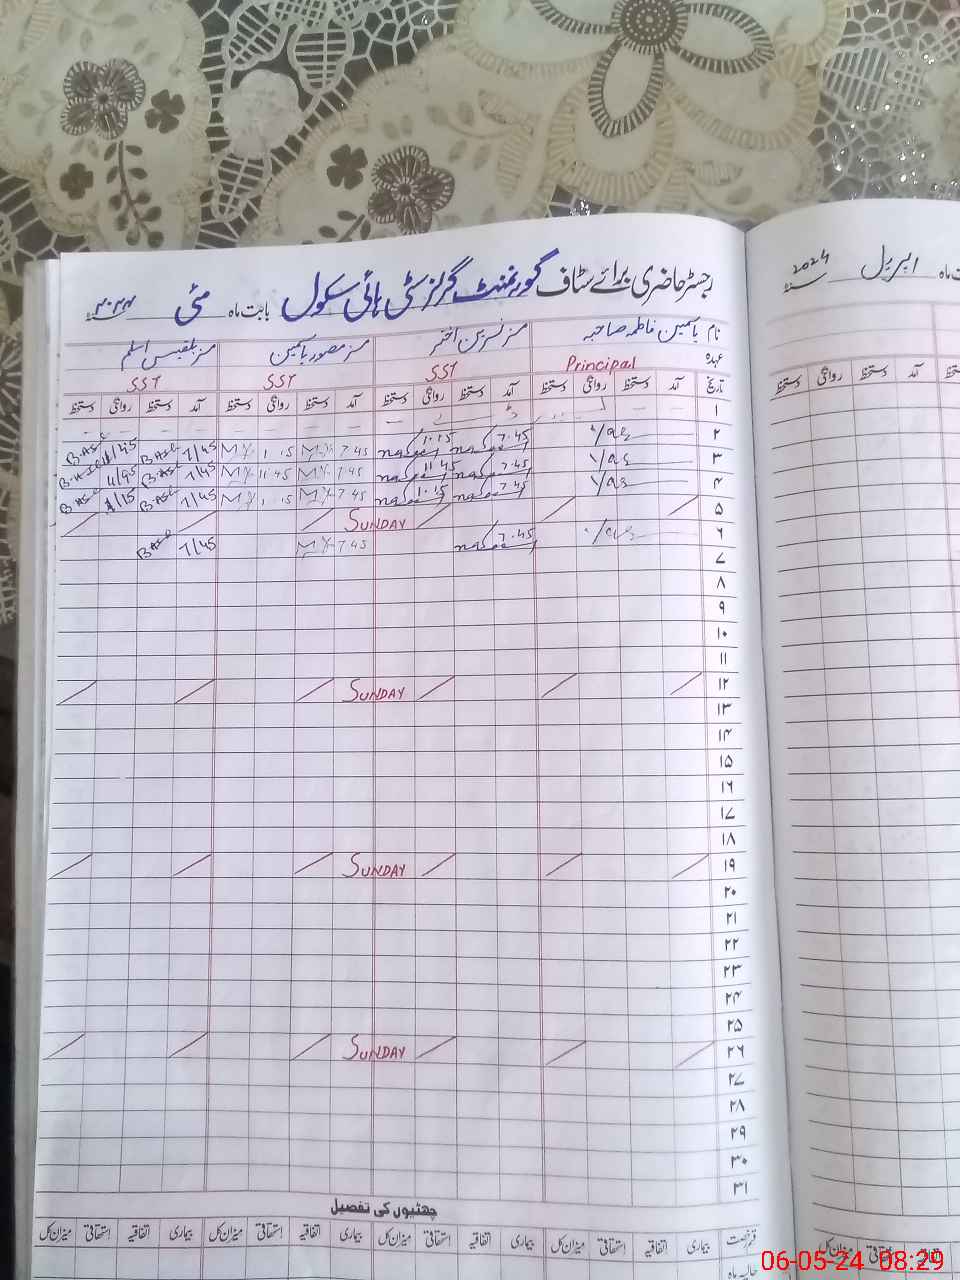 رجسٹر حاضری برائے سٹاف گورنمنٹ گرلز سٹی ہائی سکول بابت ماہ مئی ۲۰۲۴
نام یاسمین فاطمہ صاحبہ مسز نسرین اختر مسز منصور یاسمین مسز بلقیس اسلم
عہدہ Principal SST SST SST
تاریخ آمد دستخط روانگی دستخط آمد دستخط روانگی دستخط آمد دستخط روانگی دستخط آمد دستخط روانگی دستخط
۱
۲ 7.45 1.15 7.45 1.15 7/45
۳ 7.45 11.45 7.45 11.45 7/45
۴ 7.45 1.15 7.45 1.15 7/45
۵ SUNDAY
۶ 7.45 7.45 7/45
۷
۸
۹
۱۰
۱۱
۱۲ SUNDAY
۱۳
۱۴
۱۵
۱۶
۱۷
۱۸
۱۹ SUNDAY
۲۰
۲۱
۲۲
۲۳
۲۴
۲۵
۲۶ SUNDAY
۲۷
۲۸
۲۹
۳۰
۳۱
چھٹیوں کی تفصیل
رخصت بیماری اتفاقیہ استحقاقی میزان کل بیماری اتفاقیہ استحقاقی میزان کل بیماری اتفاقیہ استحقاقی میزان کل بیماری اتفاقیہ استحقاقی میزان کل
حالیہ ماہ
ماہ اپریل 2024
آمد دستخط روانگی دستخط
اتفاقیہ استحقاقی میزان کل
06-05-24 08:29